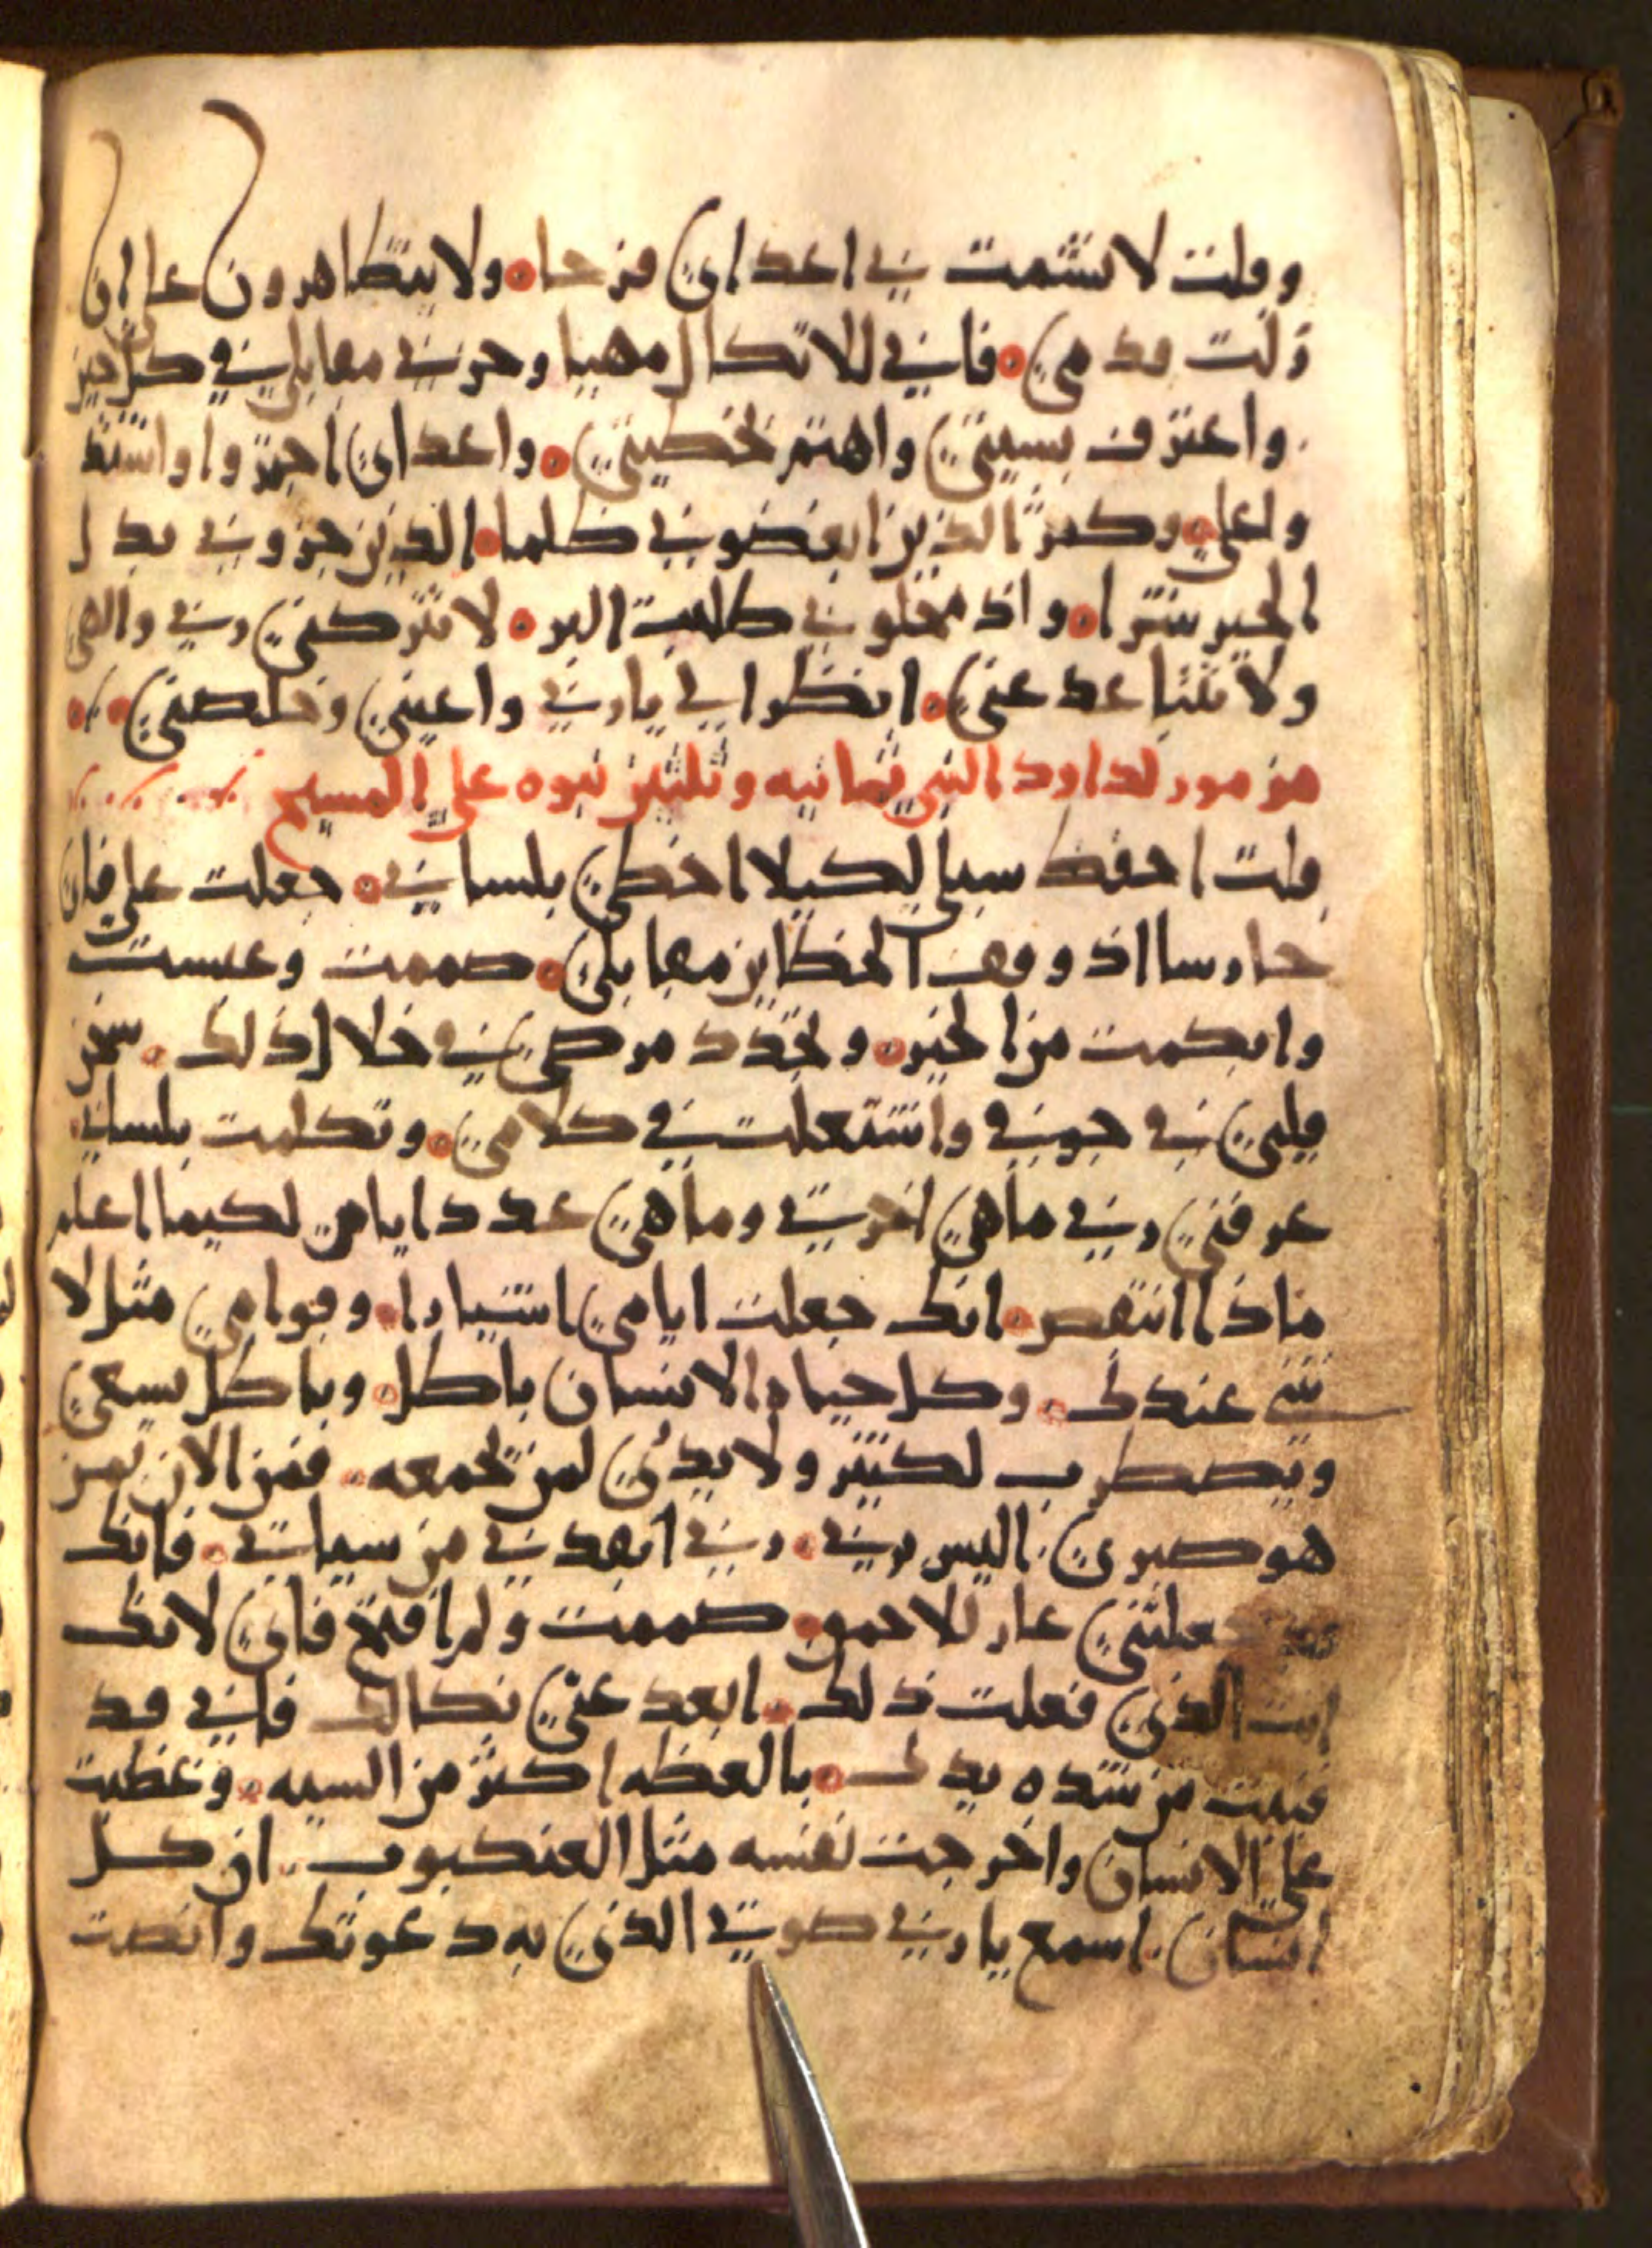 وقلت لا تشمت بي اعداي فرحا ولا يتظاهرون علي ان
زلت قدمي فاني للاتكال مهيا وحزني مقابلي في كل حين
واعترف بسيتي واهتم بخطيتي واعداي اجتروا واشتد
وا علي وكثر الذين ابغضوني ظلما الذين جزوني بدل
الخير شرا واذ محلوني طلبت البر لا تتركني ربي والهي
ولا تتباعد عني انظر الي يا ربي واعيني وخلصني
مزمور لداود النبي ثمانيه وثلثين نبوه علي المسيح
قلت احفظ سبلي لكيلا اخطي بلساني جعلت علي فاي
حارسا اذ وقف الخطاين مقابلي صممت وعبست
وابكمت من الخير وتجدد مرضي في خلال ذلك سخن
قلبي في جوفي واشتعلت في كلامي وتكلمت بلساني
عرفني ربي ما هي اخرتي وما هي عدد ايامي لكيما اعلم
ماذا انتقص انك جعلت ايامي اشبارا وقوامي مثل لا
شي عندك وكل حياه الانسان باطل وباطل يسعي
ويضطرب لكنز ولا يدري لمن يجمعه فمن الان من
هو صبري اليس ربي ربي ابعدني من سياتي فانك
جعلتني عار للاحمق صممت ولم افتح فاي لانك
انت الذي فعلت ذلك ابعد عني نكالك فاني قد
فنيت من شده يدك بالعظه اكثر من السيه وعظت
علي الانسان واخرجت نفسه مثل العنكبوب ان كل
انسان اسمع يا ربي صوتي الذي به دعوتك وانصت